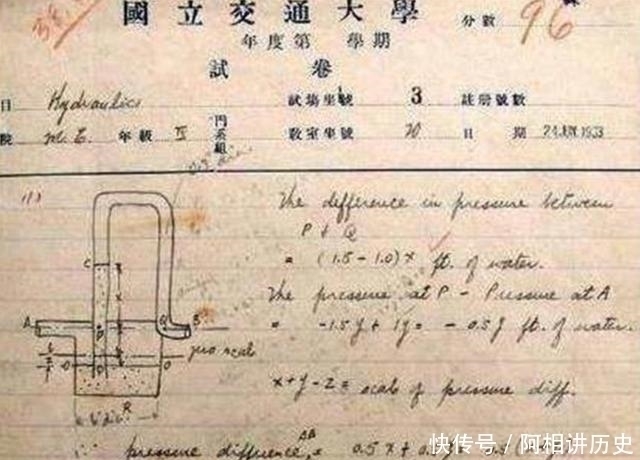 國立交通大學
分數 96
年度第 學期
試卷
目 Hydraulics 試場坐號 3 註册號數
院 M.E. 年級 IV 門系組 教室坐號 70 日期 24 JUN 1933
(1)
The difference in pressure between
P & Q
= (1.5 - 1.0) x ft. of water.
The pressure at P - Pressure at A
= -1.5y + 1y = -0.5y ft. of water.
C
A
B
zero scale
O
O
R
x+y-z = scale of pressure diff.
∴ pressure difference AB = 0.5x +
快传号/阿相讲历史